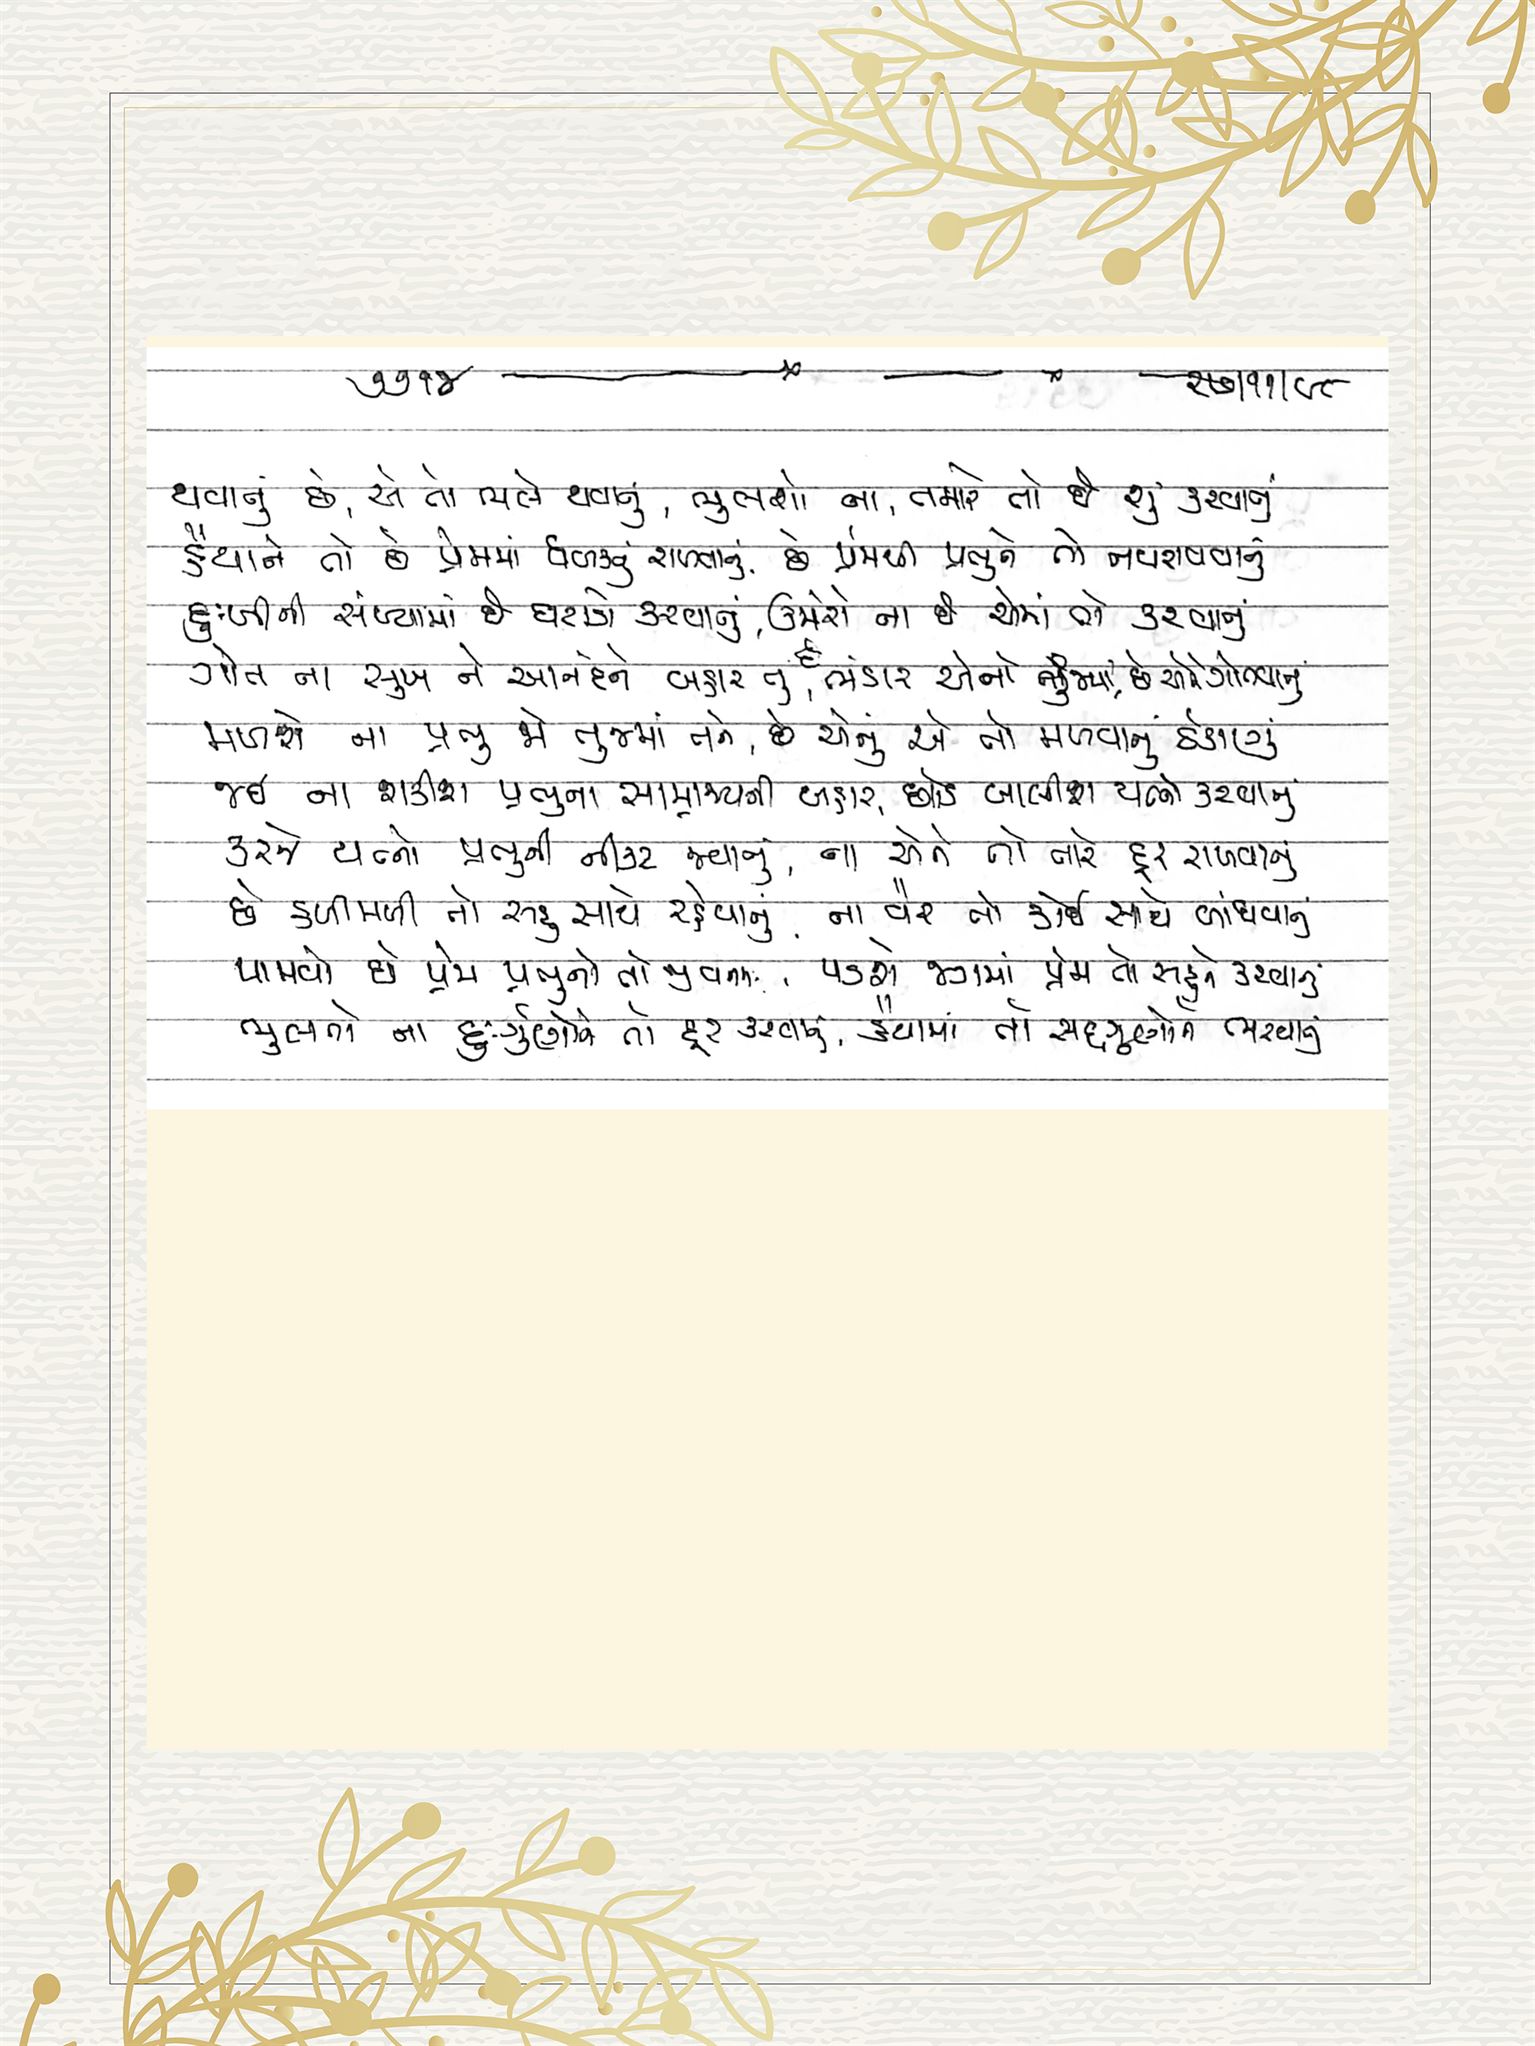 ૭૭૧૪ ૨૭/૧૧/૯૮
થવાનું છે, એ તો ભલે થવાનું, ભુલશો ના, તમારે તો છે શું કરવાનું
હૈયાને તો છે પ્રેમમાં ધબકતું રાખવાનું. છે પ્રેમથી પ્રભુને તો નવરાવવાનું
દુઃખીની સંખ્યામાં છે ઘટાડો કરવાનું, ઉમેરો ના છે એમાં તો કરવાનું
ગોત ના સુખ ને આનંદને બહાર તું, છે ભંડાર એનો હૈયામાં, છે એને ગોતવાનું
મળશે ના પ્રભુ જો તુજમાં તને, છે એનું એ તો મળવાનું ઠેકાણું
જઇ ના શકીશ પ્રભુના સામ્રાજ્યની બહાર, છોડ ખાલીખા યત્નો કરવાનું
કરજે યત્નો પ્રભુની નીકટ જવાનું, ના એને તો તારે દૂર રાખવાનું
છે હળીમળી તો સહુ સાથે રહેવાનું. ના વૈર તો કોઈ સાથે બાંધવાનું
પામવો છે પ્રેમ પ્રભુનો તો જીવનમાં. પડશે જગમાં પ્રેમ તો સહુને કરવાનું
ભુલતો ના દુઃર્ગુણોને તો દૂર કરવાનું. હૈયામાં તો સદ્દગુણોને ભરવાનું